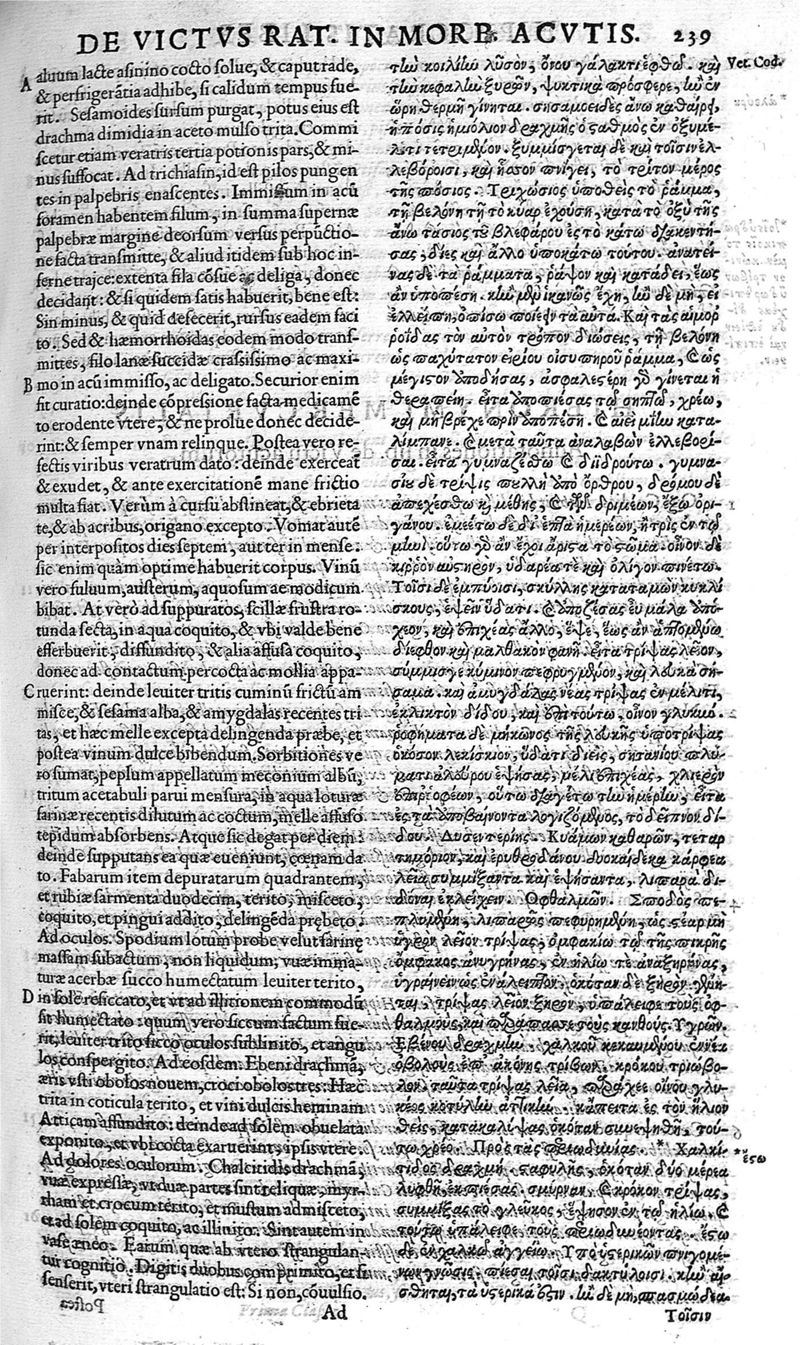 DE VICTVS RAT. IN MORB. ACVTIS. 239
A aluum lacte asinino cocto solue, & caput rade,
& perfrigerātia adhibe, si calidum tempus fue-
rit. Sesamoides sursum purgat, potus eius est
drachma dimidia in aceto mulso trita. Commi
scetur etiam veratris tertia potionis pars, & mi-
nus suffocat. Ad trichiasin, id est pilos pungen
tes in palpebris enascentes. Immissum in acū
foramen habentem filum, in summa supernæ
palpebræ margine deorsum versus perpūctio-
ne facta transmitte, & aliud itidem sub hoc in-
ferne traijce: extenta fila cōsue ac deliga, donec
decidant: & si quidem satis habuerit, bene est:
Sin minus, & quid defecerit, rursus eadem faci
to. Sed & hæmorrhoidas eodem modo trans-
mittes, filo lanæ succidæ crassissimo ac maxi-
B mo in acū immisso, ac deligato. Securior enim
fit curatio: deinde cōpressione facta medicamē
to erodente vtere, & ne prolue donec decide-
rint: & semper vnam relinque. Postea vero re-
fectis viribus veratrum dato: deinde exerceat
& exudet, & ante exercitationē mane frictio
multa fiat. Verùm à cursu abstineat, & ebrieta
te, & ab acribus, origano excepto. Vomat autē
per interpositos dies septem, aut ter in mense:
sic enim quàm optime habuerit corpus. Vinū
vero fuluum, austerum, aquosum ac modicum
bibat. At verò ad suppuratos, scillæ frustra ro-
tunda secta, in aqua coquito, & vbi valde bene
efferbuerit, diffundito, & alia affusa coquito,
donec ad contactum percocta ac mollia appa-
C ruerint: deinde leuiter tritis cuminū frictū am
misce, & sesama alba, & amygdalas recentes tri
tas, et hæc melle excepta delingenda præbe, et
postea vinum dulce bibendum. Sorbitiones ve
ro sumat, pepsum appellatum meconium albū,
tritum acetabuli parui mensura, in aqua loturæ
farinæ recentis dilutum ac coctum, melle affuso
tepidum absorbens. Atque sic degat per diem:
deinde supputans ea quæ eueniunt, cœnam da
to. Fabarum item depuratarum quadrantem,
et rubiæ sarmenta duodecim, terito, misceto,
coquito, et pingui addito, delingēda prębeto.
Ad oculos. Spodium lotum probe velut farinę
massam subactum, non liquidum, vuæ imma-
turæ acerbæ succo humectatum leuiter terito,
D in sole resiccato, et vt ad illitionem commodū
sit humectato: quum vero siccum factum fue-
rit, leuiter trito sicco oculos sublinito, et angu
los conspergito. Ad eosdem. Ebeni drachmā,
æris vsti obolos nouem, croci obolos tres: Hæc
trita in coticula terito, et vini dulcis heminam
Atticam affundito: deinde ad solem obuelata
exponito, et vbi cocta exaruerint, ipsis vtere.
Ad dolores oculorum. Chalcitidis drachmā,
vuæ expressæ, vt duæ partes sint reliquæ, myr-
rham et crocum terito, et mustum admisceto,
et ad solem coquito, ac illinito. Sint autem in
vase æneo. Earum quæ ab vtero strangulan-
tur cognitio. Digitis duobus comprimito, et si
senserit, vteri strangulatio est: Si non, cōuulsio.
Ad
τὴν κοιλίην λῦσον, ὄνου γάλακτι ἑφθῷ. καὶ Vet. Cod.
τὴν κεφαλὴν ξυρῶν, ψυκτικὰ πρόσφερε, ἢν ἐν
ὥρῃ θερμῇ γίνηται. σησαμοειδὲς ἄνω καθαίρει,
ἡ πόσις ἡμιόλιον δραχμῆς ὁ σταθμὸς ἐν ὀξυμέ-
λιτι τετριμμένον. ξυμμίσγεται δὲ καὶ τοῖσιν ἑλ-
λεβόροισι, καὶ ἧσσον πνίγει, τὸ τρίτον μέρος
τῆς πόσιος. Τριχώσιος ὑποθεὶς τὸ ράμμα,
τῇ βελόνῃ τῇ τὸ κύαρ ἐχούσῃ, κατὰ τὸ ὀξὺ τῆς
ἄνω τάσιος τοῦ βλεφάρου ἐς τὸ κάτω διακεντή-
σας, δίες καὶ ἄλλο ὑποκάτω τούτου. ἀνατεί-
νας δὲ τὰ ράμματα, ράψον καὶ κατάδει, ἕως
ἂν ὑποπέσῃ. κἢν μὲν ἱκανῶς ἔχῃ, ἢν δὲ μὴ, εἰ
ἐλλείπῃ, ὀπίσω ποιέειν τὰ αὐτά. Καὶ τὰς αἱμορ
ροΐδας τὸν αὐτὸν τρόπον διώσεις, τῇ βελόνῃ
ὡς παχύτατον εἰρίου οἰσυπηροῦ ράμμα, καὶ ὡς
μέγιστον ἀποδήσας, ἀσφαλεστέρη γὰρ γίνεται ἡ
θεραπείη. εἶτα ἀποπιέσας τῷ σηπτῷ, χρέω,
καὶ μὴ βρέχε πρὶν ἀποπέσῃ. καὶ αἰεὶ μίην κατα-
λίμπανε. καὶ μετὰ ταῦτα ἀναλαβὼν ἐλλεβορί-
σαι. εἶτα γυμναζέσθω καὶ διϊδρούτω. γυμνα-
σίου δὲ τρῖψις πολλὴ ἀπὸ ὄρθρου, δρόμου δὲ
ἀπεχέσθω καὶ μέθης, καὶ τῶν δριμέων, ἔξω ὀρι-
γάνου. ἐμεέτω δὲ δι' ἑπτὰ ἡμερέων, ἢ τρὶς ἐν τῷ
μηνί. οὕτω γὰρ ἂν ἔχοι ἄριστα τὸ σῶμα. οἶνον δὲ
κιρρὸν αὐστηρὸν, ὑδαρέα τε καὶ ὀλίγον πινέτω.
Τοῖσι δὲ ἐμπύοισι, σκίλλης καταταμὼν κυκλί
σκους, ἑψεῖν ὕδατι. καὶ ἀποζέσας εὖ μάλα ἀπό-
χεον, καὶ ἐπιχέας ἄλλο, ἕψε, ἕως ἂν ἁπτομένῳ
δίεφθον καὶ μαλθακὸν φανῇ. εἶτα τρίψας λεῖον,
σύμμισγε κύμινον πεφρυγμένον, καὶ λευκὰ ση-
σαμα. καὶ ἀμυγδάλας νέας τρίψας ἐν μέλιτι,
ἐκλικτὸν δίδου, καὶ ἐπὶ τούτῳ, οἶνον γλυκύν.
ροφήματα δὲ μήκωνος τῆς λευκῆς ὑποτρίψας
ὁκόσον λεκίσκιον, ὕδατι διεὶς, σητανίου πλύ-
ματι ἀλεύρου ἑψήσας, μέλι ἐπιχέας, χλιερὸν
ἐπιροφέων, οὕτω διαγέτω τὴν ἡμέρην, εἶτα
ἐς τὰ ἀποβαίνοντα λογιζόμενος, τὸ δεῖπνον δί-
δου. Δυσεντερίης. Κυάμων καθαρῶν, τεταρ
τημόριον, καὶ ἐρυθροδάνου δυοκαίδεκα κάρφεα
λεῖα συμμίξαντα καὶ ἑψήσαντα, λιπαρὰ δι-
δόναι ἐκλείχειν. Οφθαλμῶν. Σποδὸς πε-
πλυμένη, λιπαρῶς πεφυρημένη, ὡς σταὶς μὴ
ὑγρὸν λεῖον τρίψας, ὀμφακίῳ τῷ τῆς πικρῆς
ὄμφακος ἀνυγρήνας, ἐν ἡλίῳ τε ἀναξηρήνας,
ὑγραίνειν ὡς ἐνάλειπτον, ὁκόταν δὲ ξηρὸν γένη-
ται, τρίψας λεῖον ξηρὸν, ὑπάλειφε τοὺς ὀφ-
θαλμοὺς, καὶ παράπασσε τοὺς κανθούς. Υγρῶν.
Εβένου δραχμὴν. χαλκοῦ κεκαυμένου ἐννέα
ὀβολοὺς ἐπ' ἀκόνης τρίβων. κρόκου τριώβο-
λον. ταῦτα τρίψας λεῖα, παράχεε οἴνου γλυ-
κέος κοτύλην ἀττικὴν. κἄπειτα ἐς τὸν ἥλιον
θεὶς, κατακαλύψας ὁκόταν συμεψηθῇ, τού-
τῳ χρέο. Πρὸς τὰς περιωδυνίας. * Χαλκί- * ἔστω
τιδος δραχμὴ. σταφυλῆς, ὁκόταν δύο μέρεα
λειφθῇ, ἐκπιέσας. σμύρναν, καὶ κρόκον τρίψας,
συμμίξας τὸ γλεῦκος, ἕψησον ἐν τῷ ἡλίῳ. καὶ
τούτῳ ὑπάλειφε τοὺς περιωδυνέοντας. ἔστω
δὲ ἐν χαλκῷ ἀγγείῳ. Υπὸ ὑστερικῶν πνιγομέ-
νων γνῶσις. πίεσαι τοῖσι δακτύλοισι. κἢν αἴ-
σθηται, τὰ ὑστερικά ἐστιν. ἢν δὲ μὴ, σπασμώδεα.
Τοῖσιν